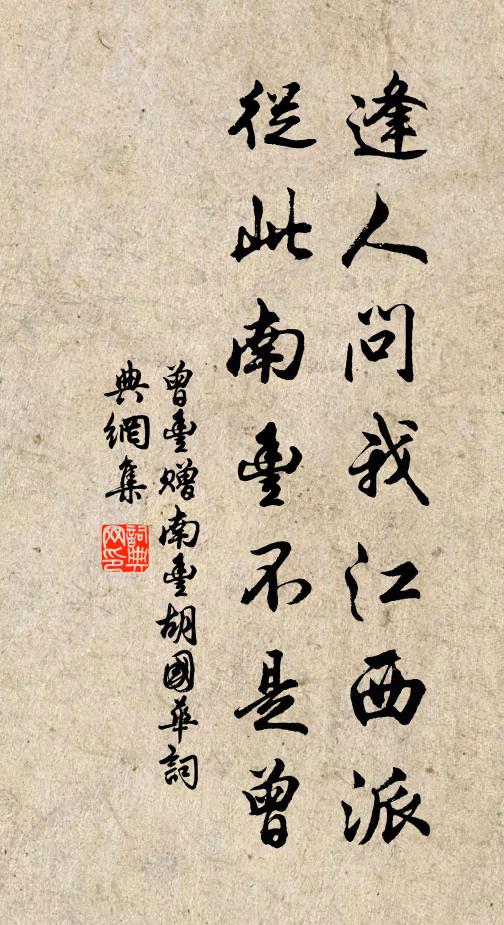 逢人問我江西派
從此南豐不是曾
曾豐贈南豐胡國華詞
典網集
詞典網印